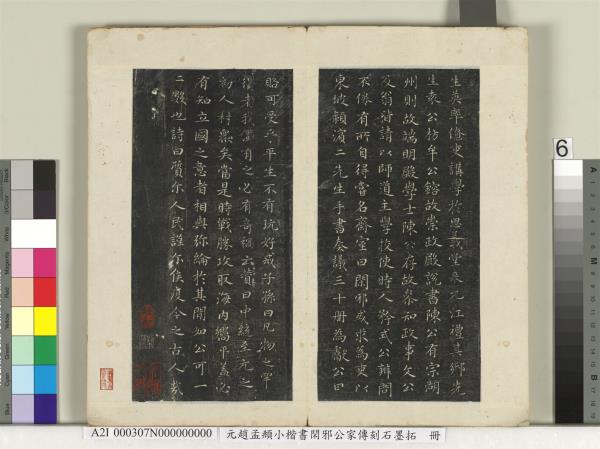 生英率僚吏講學於思義堂来元江禮其鄉先
生袁公枋牟公鎔故崇政殿説書陳公有宗湖
州則故端明殿學士陳公存故參知政事文公
及翁皆請以師道主學校使時人矜式公辯問
不倦有所自得嘗名齋室曰閑邪或求為吏以
東坡潁濱二先生手書奏議三十冊為獻公曰
賂可受乎平生不有玩好戒子孫曰凡物之罕
得者我儻有之必有奇禍云贊曰中統至元之
初人材盛矣當是時戰勝攻取海内嚮平蓋必
有知立國之意者相與弥綸於其間如公可一
二數也詩曰質尔人民謹尔侯度今之古人哉
6
A2I 000307N000000000 元趙孟頫小楷書閑邪公家傳刻石墨拓 冊